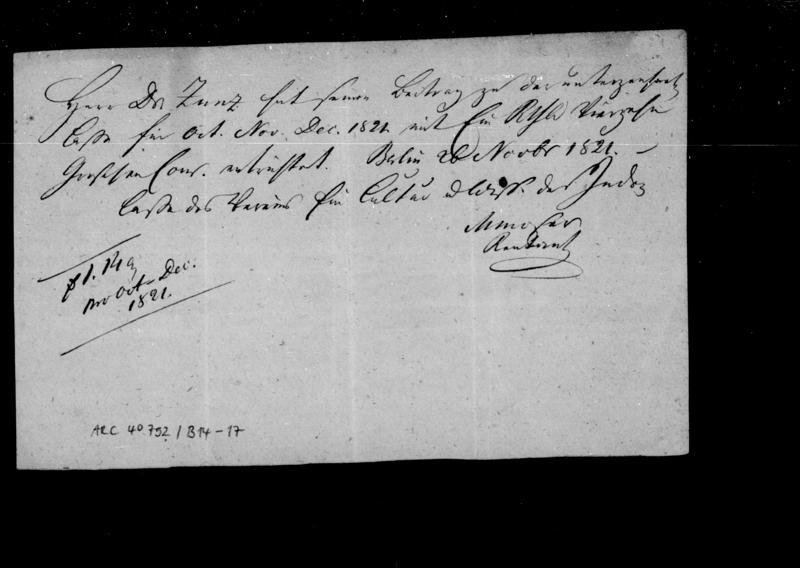 Herr Dr Zunz hat seinen Beitrag zu der unterzeichneten
Casse für Oct. Nov. Dec. 1821. mit Ein Rthlr Vierzehn
Groschen Cour. entrichtet. Berlin 26 Novbr 1821. –
Casse des Vereins für Cultur u Wiss. der Juden
M Moser
Rendant
1. 14 g
pro Oct – Dec.
1821.
ARC 4o 792 / B14-17